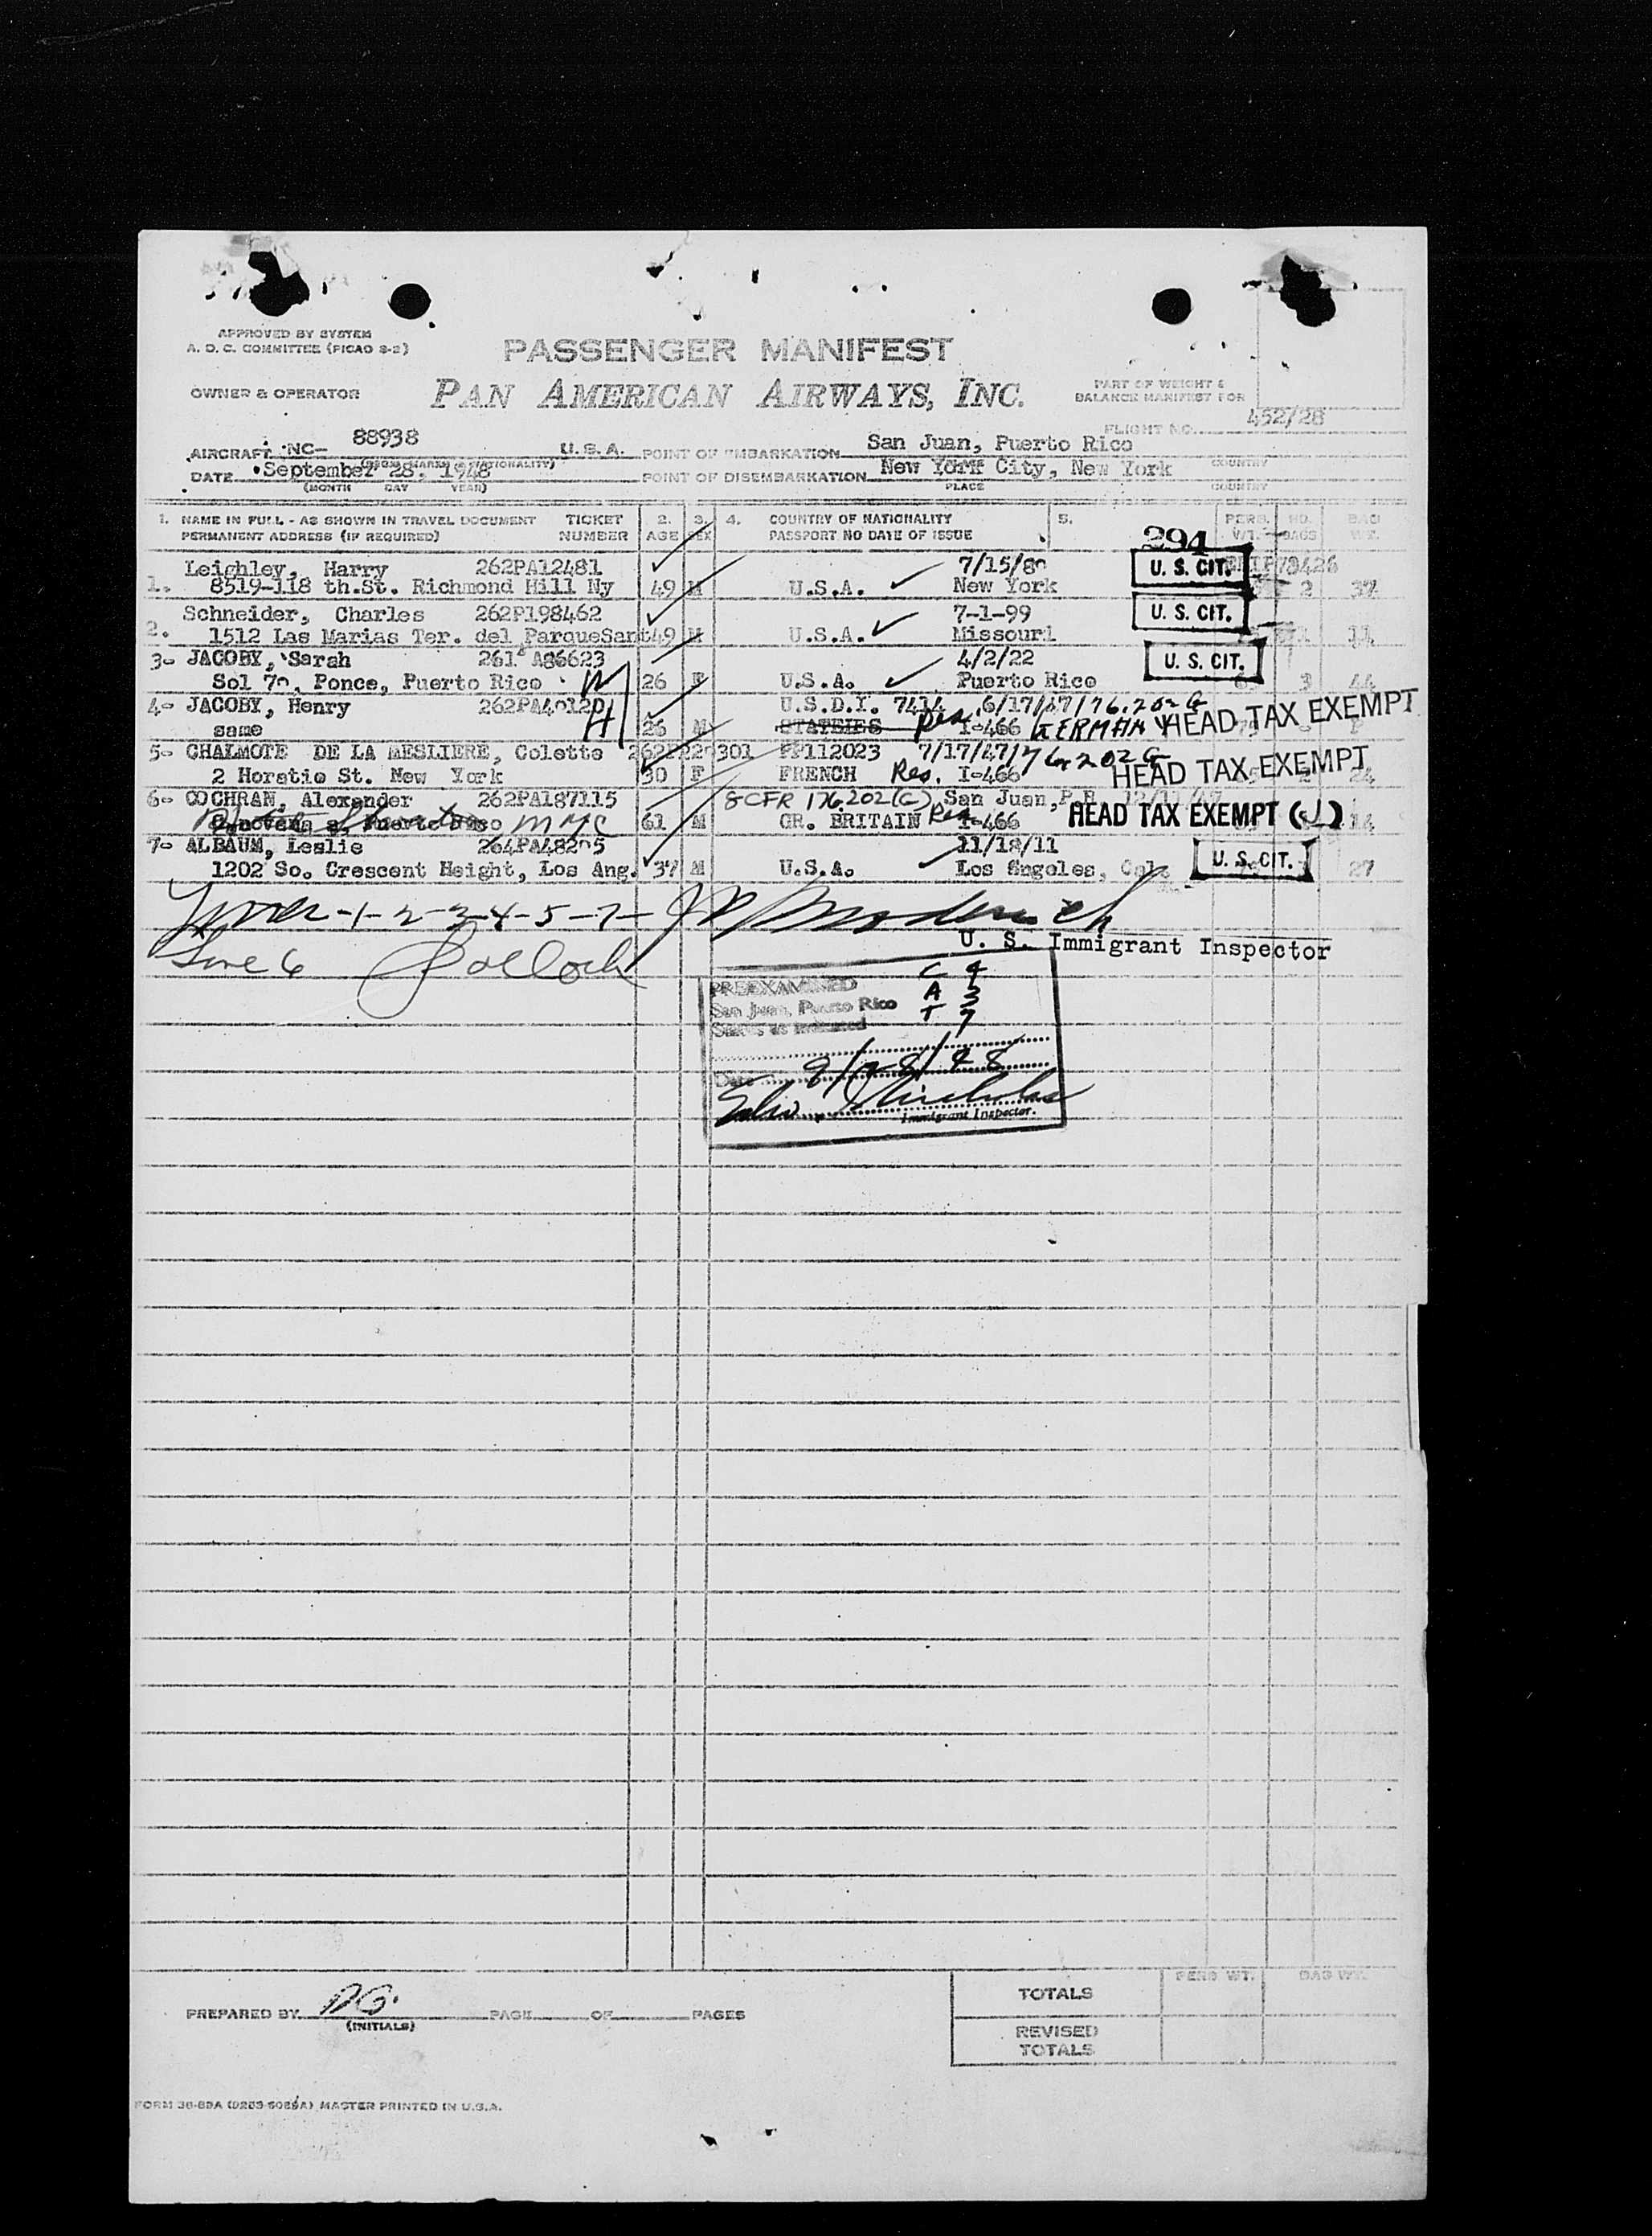 APPROVED BY SYSTEM
A. O. C. COMMITTEE (PICAO 2-2)
PASSENGER MANIFEST
OWNER & OPERATOR
PAN AMERICAN AIRWAYS, INC.
PART OF WEIGHT &
BALANCE MANIFEST FOR
FLIGHT NO. 452/28
AIRCRAFT NC- 88938 U.S.A. POINT OF EMBARKATION San Juan, Puerto Rico
DATE September 28, 1948 POINT OF DISEMBARKATION New York City, New York COUNTRY
(MONTH DAY YEAR) PLACE COUNTRY
1. NAME IN FULL - AS SHOWN IN TRAVEL DOCUMENT TICKET 2. 3. 4. COUNTRY OF NATIONALITY 5. PERS. NO. BAG
PERMANENT ADDRESS (IF REQUIRED) NUMBER AGE SEX PASSPORT NO DATE OF ISSUE WT. BAGS WT.
294
Leighley, Harry 262PA12481 7/15/ U. S. CIT.
1. 8519-118 th.St. Richmond Hill Ny 49 M U.S.A. New York 2 37
Schneider, Charles 262P198462 7-1-99 U. S. CIT.
2. 1512 Las Marias Ter. del ParqueSant 49 M U.S.A. Missouri 11
3- JACOBY, Sarah 261 A86623 4/2/22 U. S. CIT.
Sol 70, Ponce, Puerto Rico W 26 F U.S.A. Puerto Rico 3 44
4- JACOBY, Henry H U.S.D.I. 7414 6/17/47 176.202 G
same 26 M STATELES Res. I-466 GERMAN HEAD TAX EXEMPT
5- CHALMOTE DE LA MESLIERE, Colette PP112023 7/17/47 176.202 G
2 Horatio St. New York 30 F FRENCH Res. I-466 HEAD TAX EXEMPT 24
6- COCHRAN, Alexander 262PA187115 8 CFR 176.202(G) San Juan, P.R.
Puerto Rico 61 M GR. BRITAIN Res I-466 HEAD TAX EXEMPT (J) 14
7- ALBAUM, Leslie 264PA48205 11/18/11
1202 So. Crescent Height, Los Ang. 37 M U.S.A. Los Engeles, Cal. U. S. CIT. 27
-1-2-3-4-5-7-
U. S. Immigrant Inspector
Line 6 Pollock
PREEXAMINED C 4
San Juan, Puerto Rico A 3
Status as indicated T 7
Date 9/28/48
Immigrant Inspector.
PREPARED BY DG. PAGE OF PAGES
(INITIALS)
PERS WT. BAG WT.
TOTALS
REVISED
TOTALS
MASTER PRINTED IN U.S.A.